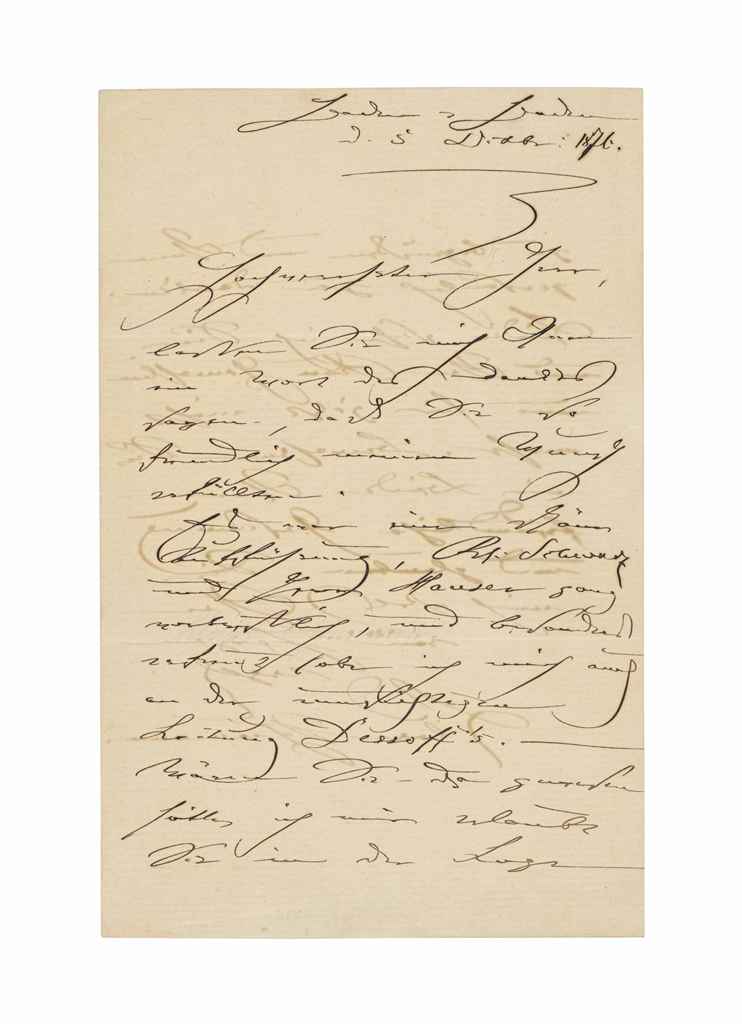 Baden-Baden
d. 5 Dcbr: 1876.
Hochverehrter Herr,
lassen Sie mich Ihnen
ein Wort des Dankes
sagen, daß Sie so
freundlich meinen Wunsch
erfüllten.
Es war eine schöne
Aufführung, Schwarz
und Frau Hauser ganz
vortrefflich, und besonders
erfreut habe ich mich auch
an der umsichtigen
Leitung Dessoff's.
Wären Sie da gewesen
hätte ich mir erlaubt
Sie in der Loge